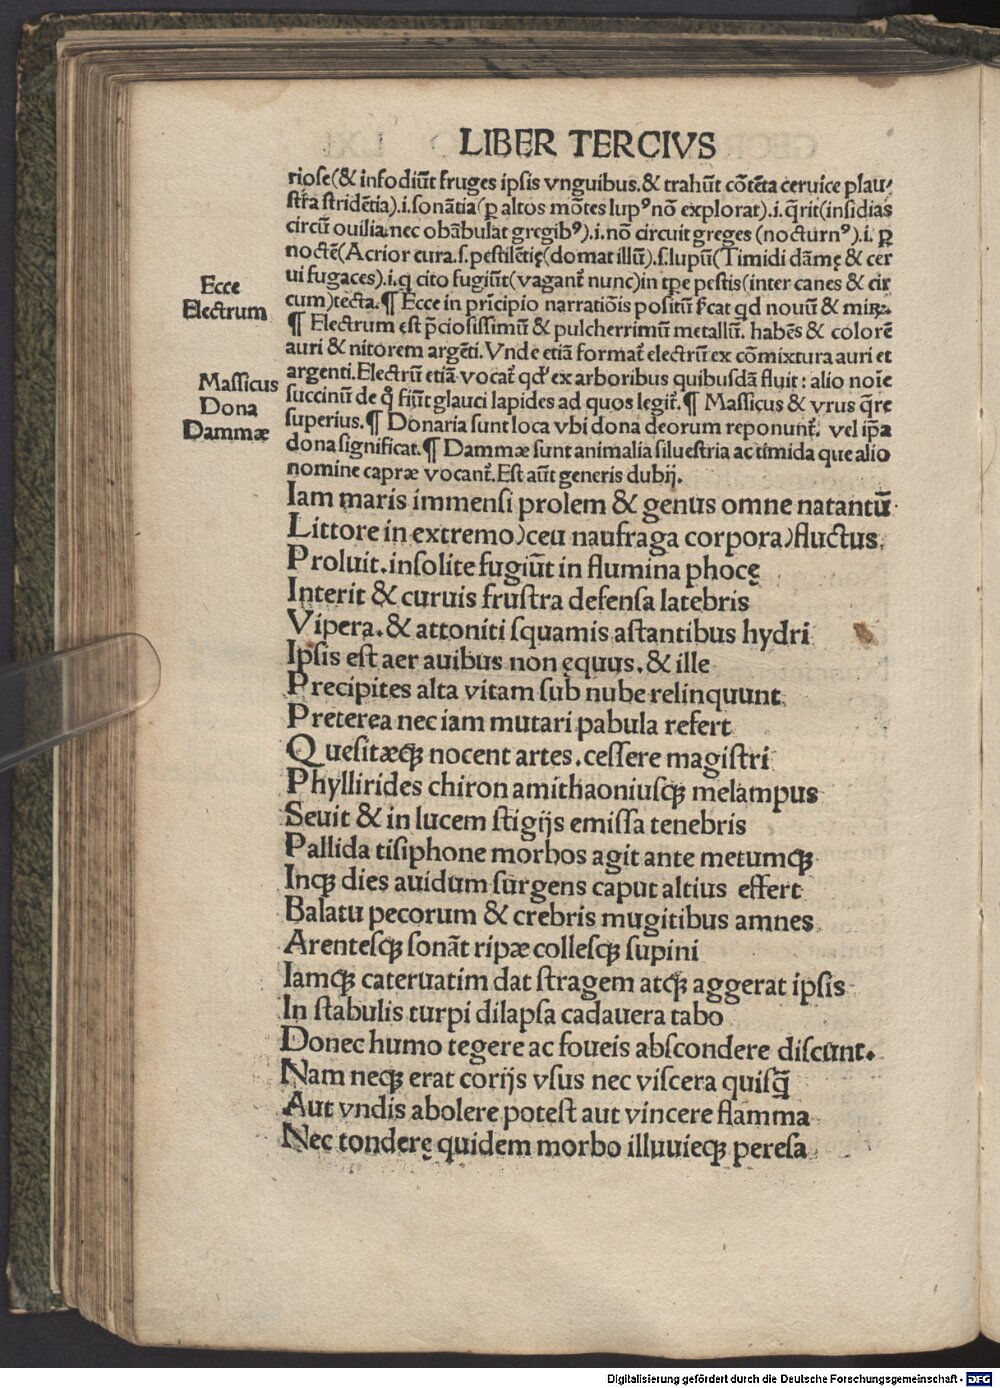 LIBER TERCIVS
rioſe(& infodiūt fruges ipſis vnguibus.& trahūt cōtēta ceruice plau⸗
ſtra ſtridētia).i.ſonātia(ꝑ altos mōtes lupꝰ nō explorat).i.q̄rit(inſidias
circū ouilia.nec obābulat gregibꝰ).i.nō circuit greges (nocturnꝰ).i. ꝑ
noctē(Acrior cura.ſ.peſtilētię(domat illū).ſ.lupū(Timidi dāmę & cer
ui fugaces).i.q cito fugiūt(vagant᷑ nunc)in tꝑe peſtis(inter canes & cir
cum)tecta.¶ Ecce in prīcipio narratiōis poſitū ſ̄cat qd nouū & miꝝ.
¶ Electrum eſt p̄cioſiſſimū & pulcherrimū metallū. habēs & colorē
auri & nitorem argēti.Vnde etiā format᷑ electrū ex cōmixtura auri et
argenti.Electrū etiā vocat᷑ qd' ex arboribus quibuſdā fluit : alio noīe
ſuccinū de q̊ fiūt glauci lapides ad quos legit᷑.¶ Maſſicus & vrus q̄re
ſuperius.¶ Donaria ſunt loca vbi dona deorum reponunt᷑. vel ip̄a
dona ſignificat.¶ Dammæ ſunt animalia ſilueſtria ac timida que alio
nomine capræ vocant᷑.Eſt aūt generis dubij.
Ecce
Electrum
Maſſicus
Dona
Dammæ
Iam maris immenſi prolem & genus omne natantū
Littore in extremo)ceu naufraga corpora)fluctus.
Proluit.inſolite fugiūt in flumina phocę
Interit & curuis fruſtra defenſa latebris
Vipera.& attoniti ſquamis aſtantibus hydri
Ipſis eſt aer auibus non ęquus.& ille
Precipites alta vitam ſub nube relinquunt
Preterea nec iam mutari pabula refert
Queſitæqꝫ nocent artes.ceſſere magiſtri
Phyllirides chiron amithaoniuſqꝫ melampus
Seuit & in lucem ſtigijs emiſſa tenebris
Pallida tiſiphone morbos agit ante metumqꝫ
Inqꝫ dies auidum ſurgens caput altius effert
Balatu pecorum & crebris mugitibus amnes
Arenteſqꝫ ſonāt ripæ colleſqꝫ ſupini
Iamqꝫ cateruatim dat ſtragem atqꝫ aggerat ipſis
In ſtabulis turpi dilapſa cadauera tabo
Donec humo tegere ac foueis abſcondere diſcunt.
Nam neqꝫ erat corijs vſus nec viſcera quiſq̄
Aut vndis abolere poteſt aut vincere flamma
Nec tonderę quidem morbo illuuieqꝫ pereſa
Digitalisierung gefördert durch die Deutsche Forschungsgemeinschaft - DFG